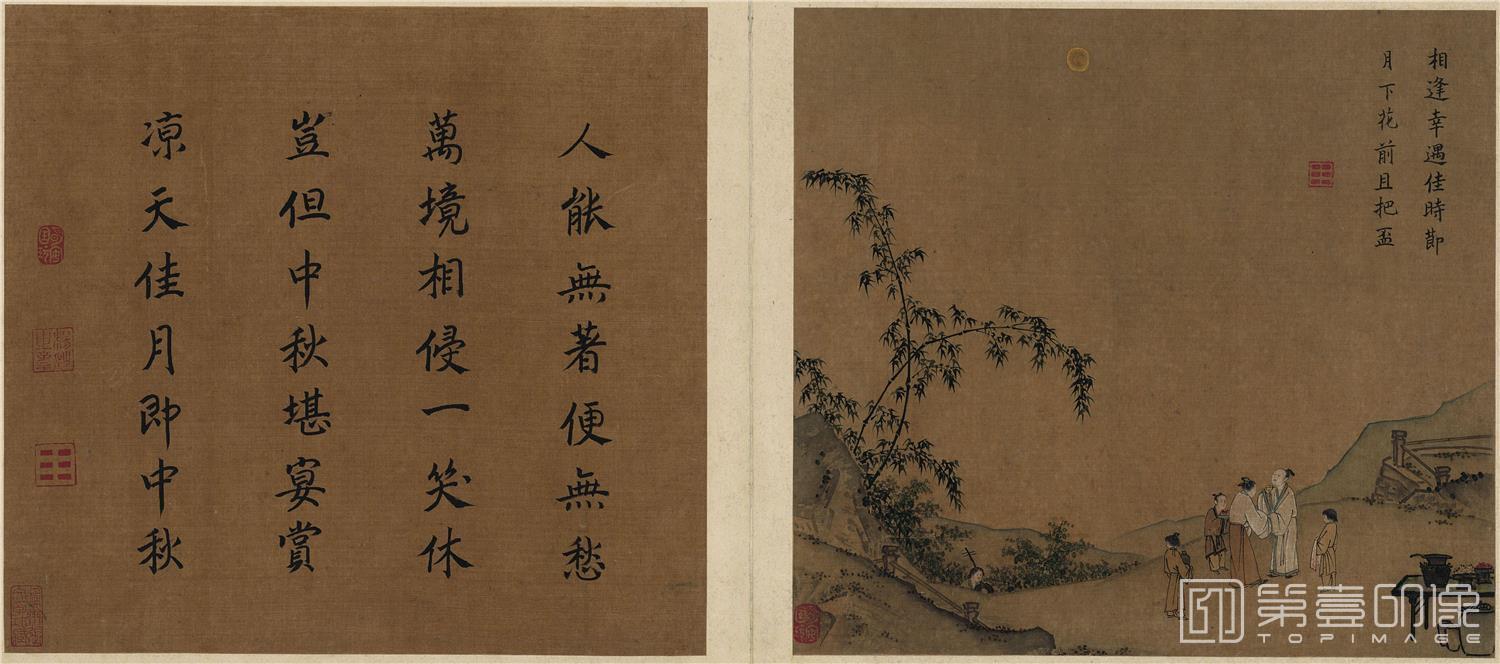 相逢幸遇佳時節
月下花前且把盃
人能無著便無愁
萬境相侵一笑休
豈但中秋堪宴賞
凉天佳月即中秋
第壹印像
TOPIMAGE